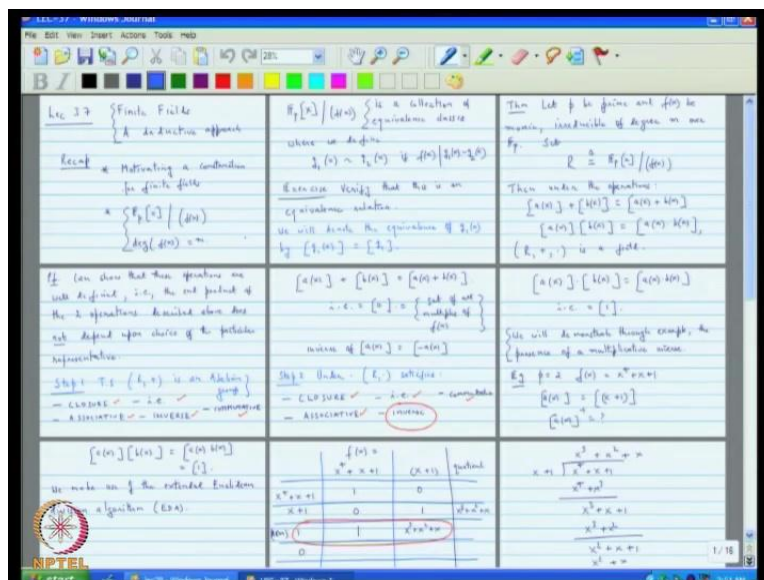 LEC-37 - Windows Journal
File Edit View Insert Actions Tools Help
28%
B I
Lec 37 { Finite Fields
{ A deductive approach
Recap * Motivating a construction
for finite fields
* { Fp[x] / (f(x))
{ deg(f(x)) = m
Fp[x] / (f(x)) { is a collection of
{ equivalence classes
where we define
g1(x) ~ g2(x) if f(x) | g1(x)-g2(x)
Exercise Verify that this is an
equivalence relation.
We will denote the equivalence of g1(x)
by [g1(x)] = [g1].
Thm Let p be prime and f(x) be
monic, irreducible of degree m over
Fp. Set
R ≜ Fp[x] / (f(x))
Then under the operations:
[a(x)] + [b(x)] = [a(x) + b(x)]
[a(x)] [b(x)] = [a(x) · b(x)],
(R, +, ·) is a field.
Pf Can show that these operations are
well defined, i.e., the end product of
the 2 operations described above does
not depend upon choice of the particular
representative.
Step 1 T.S (R, +) is an Abelian
group }
- CLOSURE ✓ - i.e ✓
- ASSOCIATIVE ✓ - INVERSE ✓ - COMMUTATIVE ✓
[a(x)] + [b(x)] = [a(x) + b(x)]
i.e. = [0] = { set of all
multiples of
f(x) }
inverse of [a(x)] = [-a(x)]
Step 2 Under · (R, ·) satisfies:
- CLOSURE ✓ - i.e ✓ - commutative ✓
- ASSOCIATIVE ✓ - INVERSE
[a(x)] · [b(x)] = [a(x) · b(x)]
i.e. = [1].
{ We will demonstrate through example, the
{ presence of a multiplicative inverse
Eg p=2 f(x) = x^4+x+1
[a(x)] = [(x+1)]
[a(x)]^-1 = ?
[a(x)] [b(x)] = [a(x) b(x)]
= [1].
We make use of the extended Euclidean
division algorithm (EDA).
f(x) =
x^4+x+1 (x+1) quotients
x^4+x+1 1 0
x+1 0 1 x^3+x^2+x
(rem) 1 1 x^3+x^2+x
0
x^3 + x^2 + x
x+1 x^4+x+1
x^4+x^3
x^3+x+1
x^3+x^2
x^2+x+1
x^2+x
1 / 16
NPTEL
start